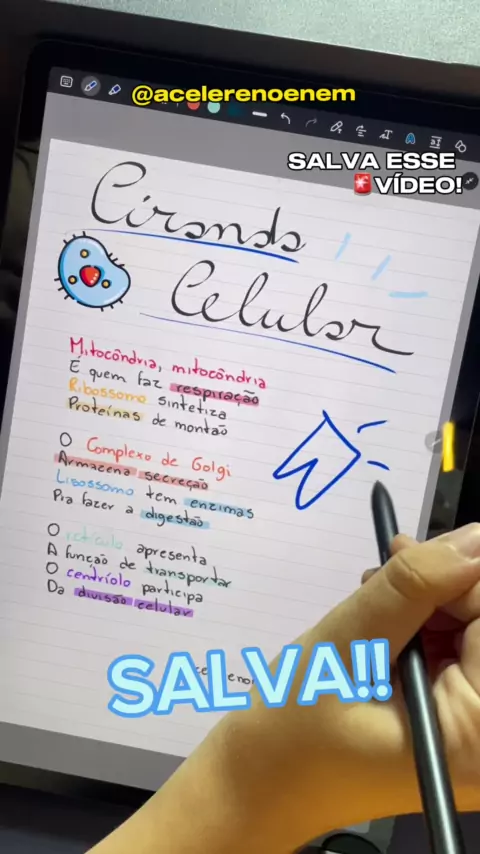 @acelerenoenem
SALVA ESSE
🚨VÍDEO!
Ciranda
Celular
Mitocôndria, mitocôndria
É quem faz respiração
Ribossomo sintetiza
Proteínas de montão
O Complexo de Golgi
Armazena secreção
Lisossomo tem enzimas
Pra fazer a digestão
O retículo apresenta
A função de transportar
O centríolo participa
Da divisão celular
SALVA!!